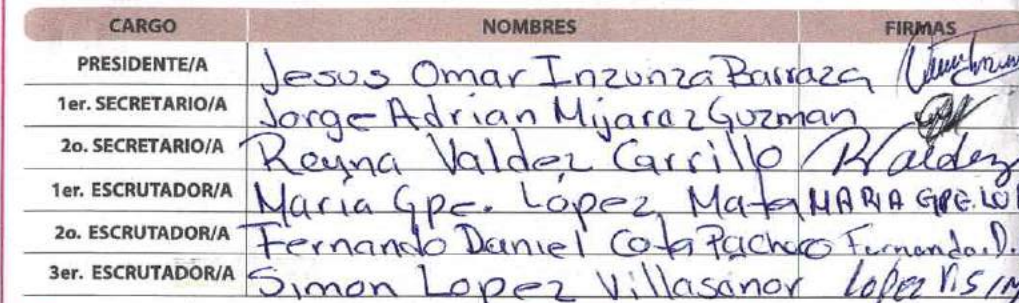 CARGO NOMBRES FIRMAS
PRESIDENTE/A Jesus Omar Inzunza Barraza
1er. SECRETARIO/A Jorge Adrian Mijarez Guzman
2o. SECRETARIO/A Reyna Valdez Carrillo RValdez
1er. ESCRUTADOR/A Maria Gpe. López Mata MARIA GPE. LO
2o. ESCRUTADOR/A Fernando Daniel Cota Pacheco Fernando D.
3er. ESCRUTADOR/A Simon Lopez Villasanor Lopez V. SIM